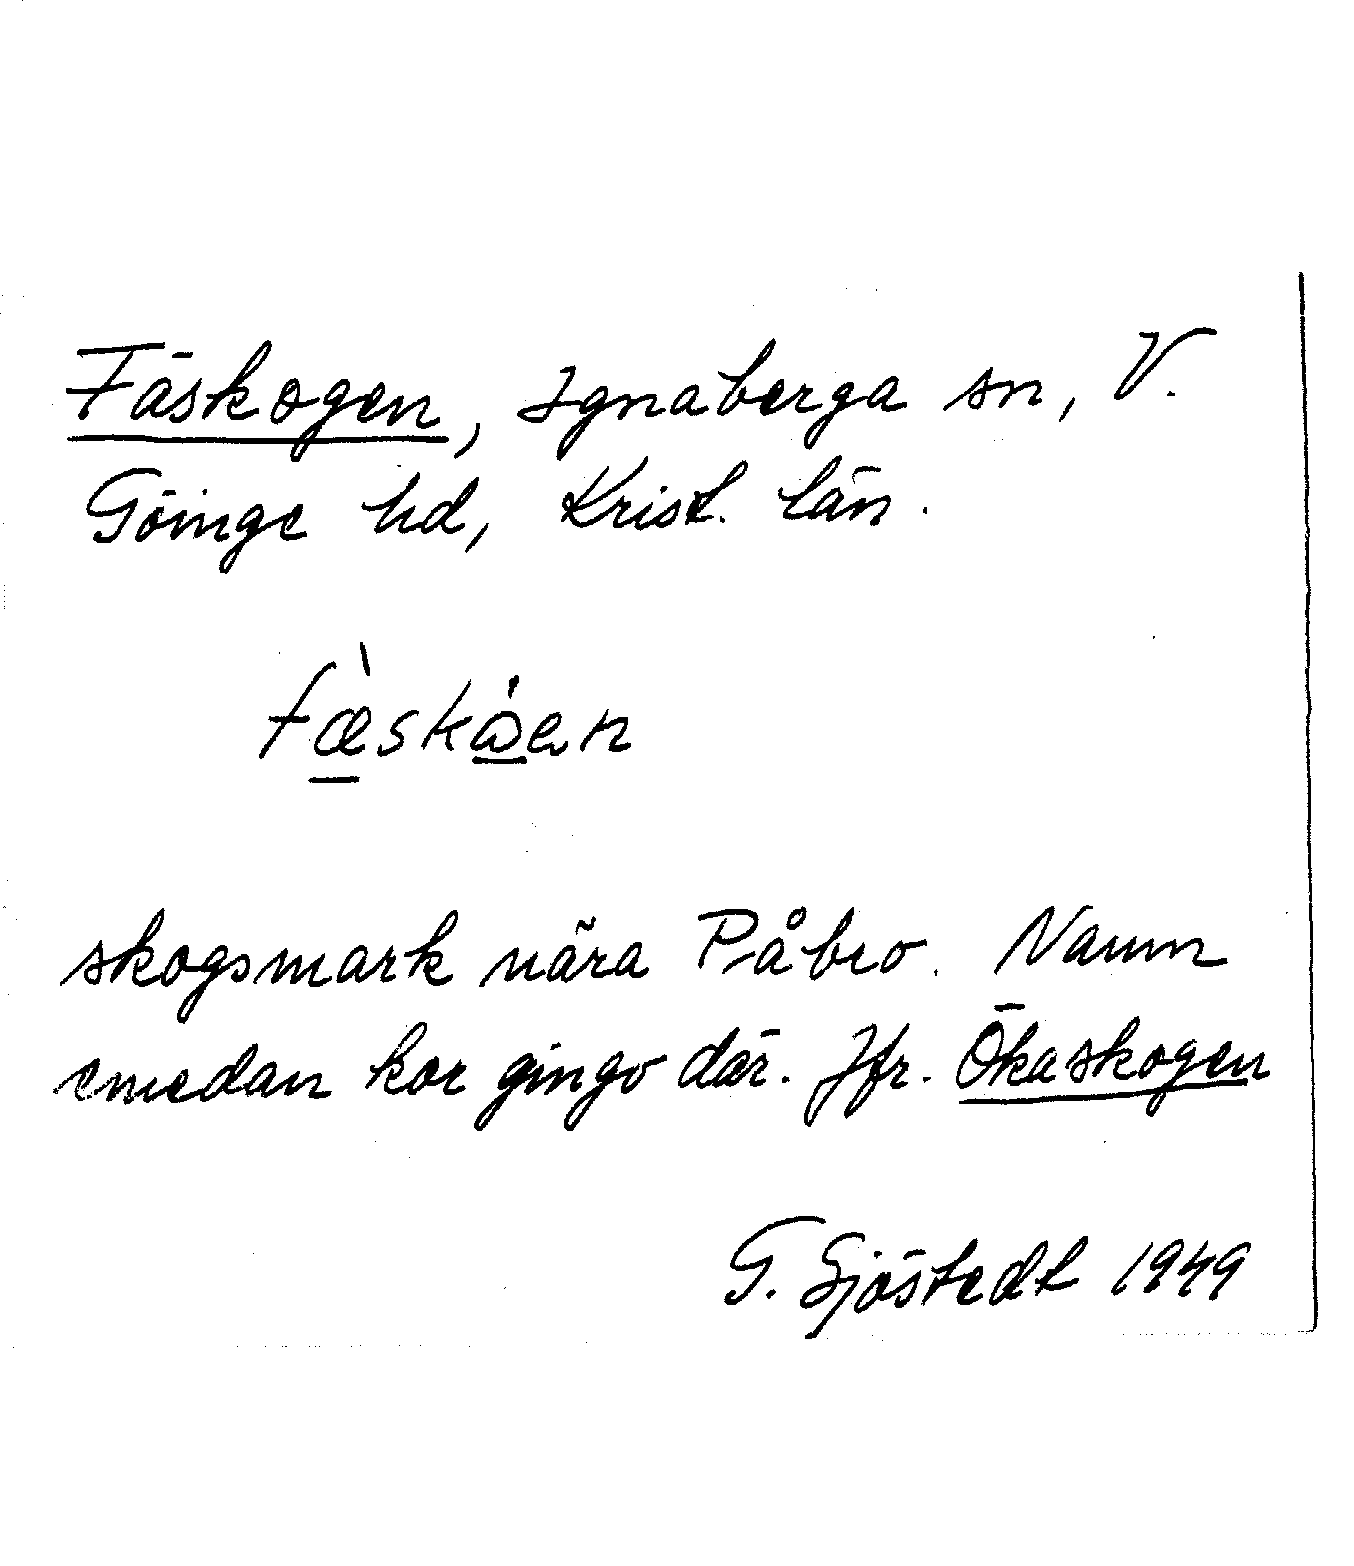 Fäskogen, Ignaberga sn, V.
Göinge hd, Krist. län.
fæ̀skåen
skogsmark nära Påbro. Namn
emedan kor gingo där. Jfr. Ökaskogen
G. Sjöstedt 1949